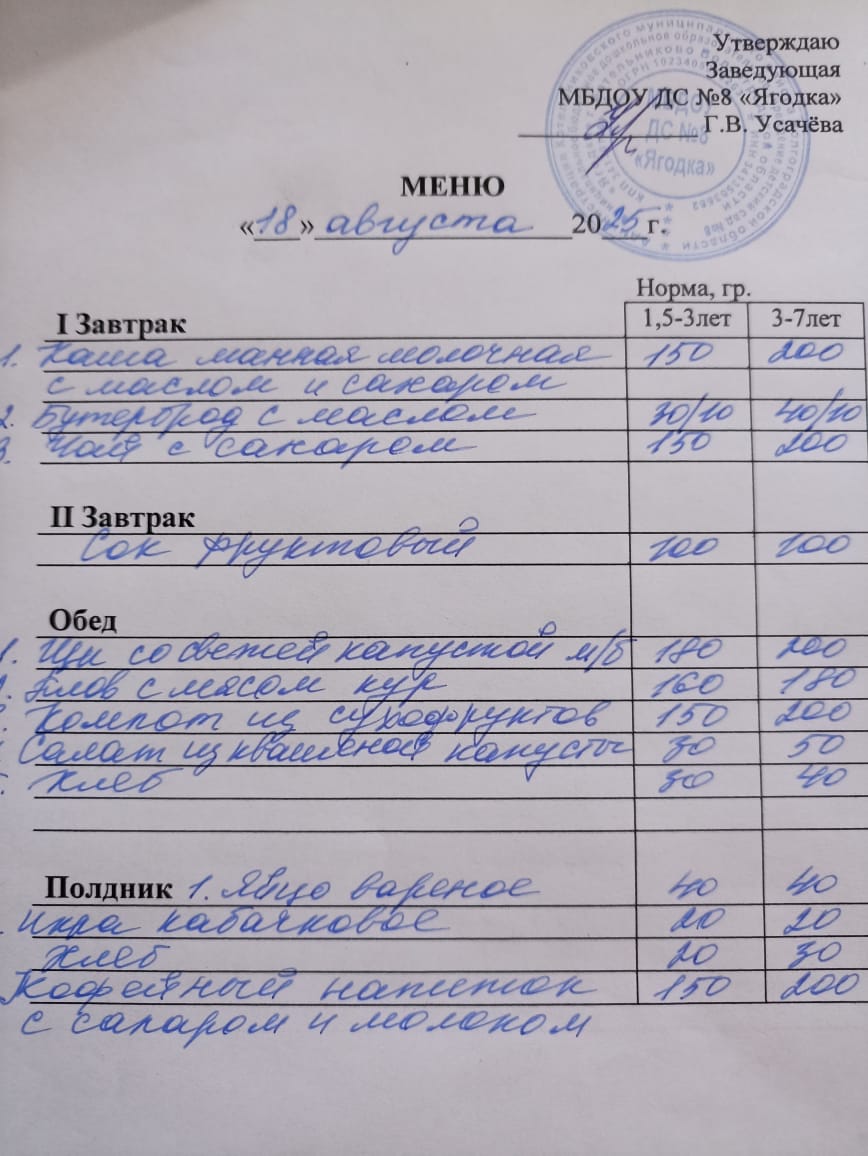 Утверждаю
Заведующая
МБДОУ ДС №8 «Ягодка»
Г.В. Усачёва
МБДОУ
ДС №8
«Ягодка»
МЕНЮ
«18» августа 2025 г.
Норма, гр.
I Завтрак 1,5-3лет 3-7лет
1. Каша манная молочная 150 200
с маслом и сахаром
2. Бутерброд с маслом 30/10 40/10
3. Чай с сахаром 150 200
II Завтрак
Сок фруктовый 100 100
Обед
1. Щи со свежей капустой м/б 180 200
Плов с мясом кур 160 180
Компот из сухофруктов 150 200
Салат из квашеной капусты 30 50
Хлеб 30 40
Полдник 1. Яйцо вареное 40 40
Икра кабачковое 20 20
Хлеб 20 30
Кофейный напиток 150 200
с сахаром и молоком